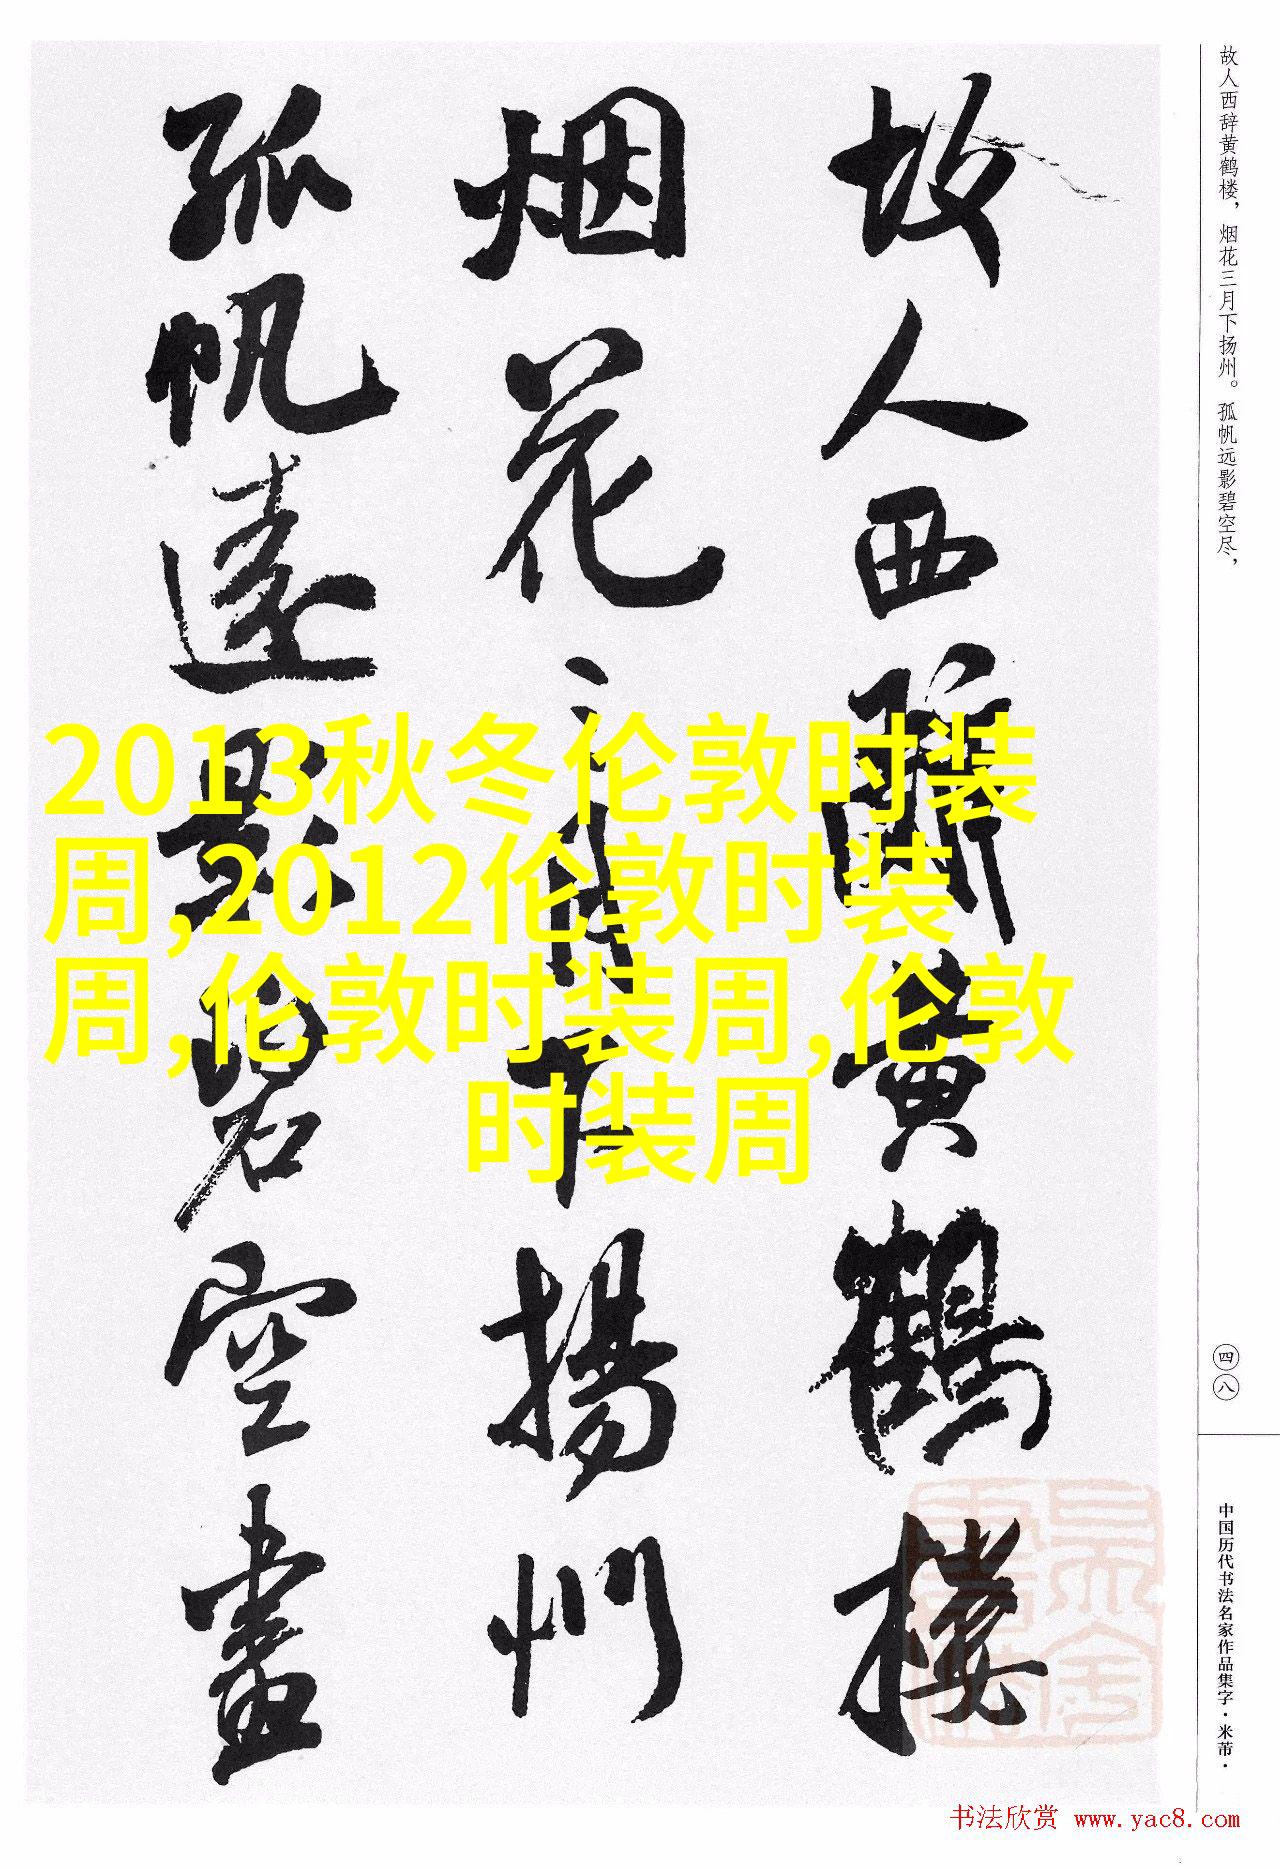 故人西辞黄鹤楼，烟花三月下扬州。孤帆远影碧空尽，
故人西辭黄鶴樓
烟花三月下揚州
孤帆遠影碧空盡
2013秋冬伦敦时装
周,2012伦敦时装
周,伦敦时装周,伦敦
时装周
四八
中国历代书法名家作品集字·米芾·
书法欣赏 www.yac8.com